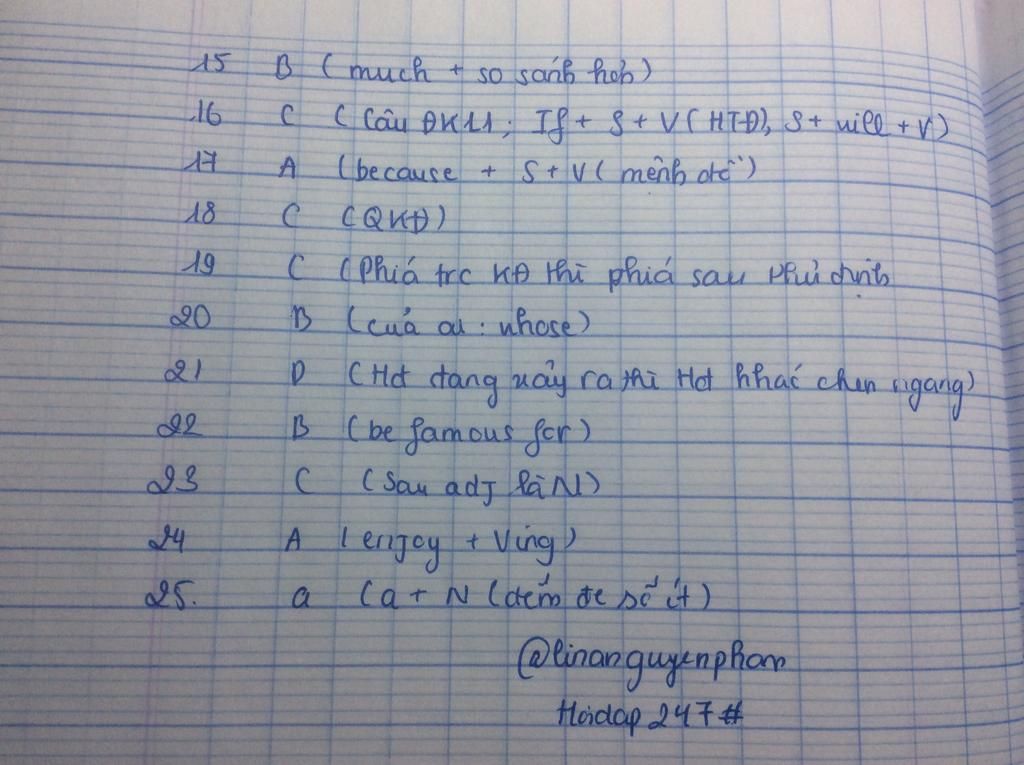 15 B (much + so sánh hơn)
16 C (Câu ĐK L1: If + S + V(HTĐ), S + will + V)
17 A (because + S + V (mệnh đề))
18 C (QKĐ)
19 C (Phiá trc KĐ thì phiá sau Phủ định
20 B (của ai : whose)
21 D (Hđ đang xảy ra thì Hđ khác chen ngang)
22 B (be famous for)
23 C (Sau adj là N)
24 A (enjoy + Ving)
25. a (a + N (đếm đc số ít)
@linanguyenpham
Hoidap 247#